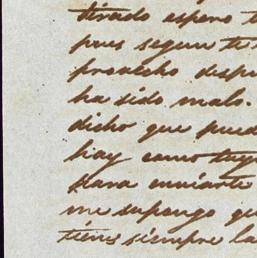 tirado espero t
pues segun te
provecho dispu
ha sido malo.
dicho que pued
hay como tuyo
para enviarte
me supongo qu
tiene siempre la